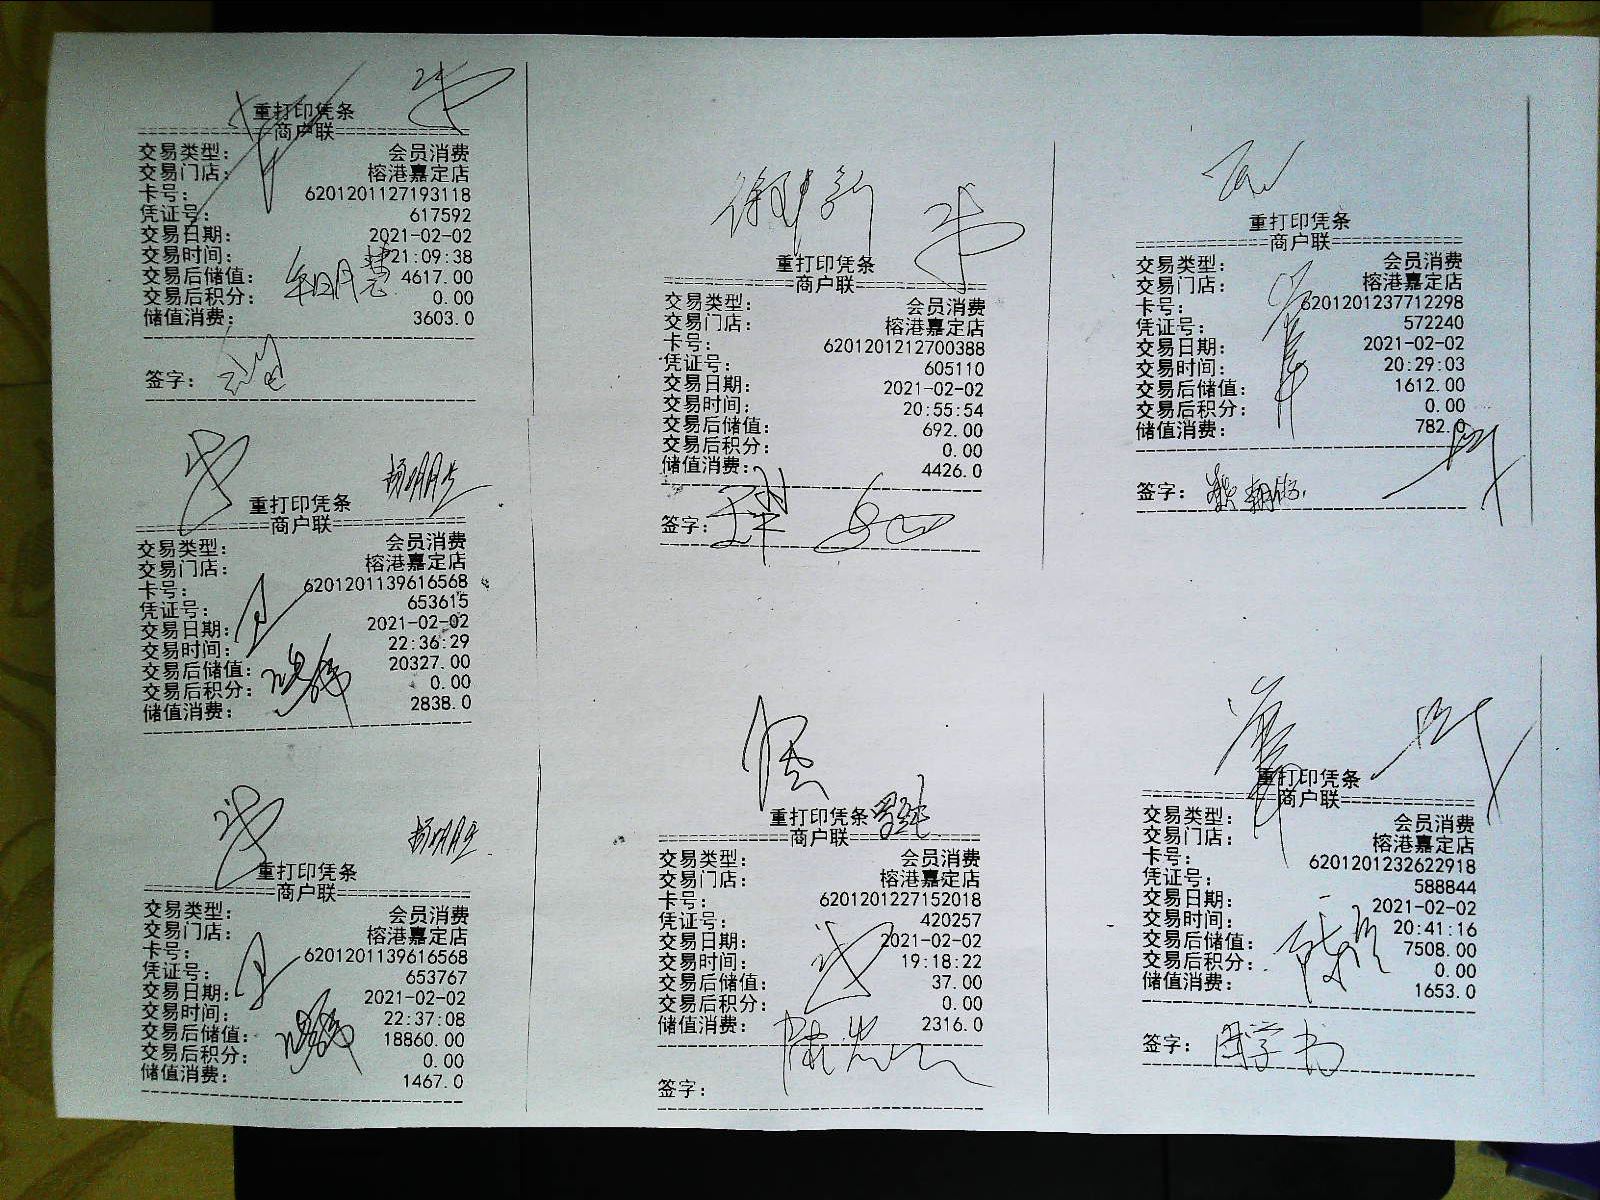 重打印凭条
==========商户联==========
交易类型: 会员消费
交易门店: 榕港嘉定店
卡号: 6201201127193118
凭证号: 617592
交易日期: 2021-02-02
交易时间: 21:09:38
交易后储值: 4617.00
交易后积分: 0.00
储值消费: 3603.0
签字:
杨明
重打印凭条
==========商户联==========
交易类型: 会员消费
交易门店: 榕港嘉定店
卡号: 6201201139616568
凭证号: 653615
交易日期: 2021-02-02
交易时间: 22:36:29
交易后储值: 20327.00
交易后积分: 0.00
储值消费: 2838.0
杨明
重打印凭条
==========商户联==========
交易类型: 会员消费
交易门店: 榕港嘉定店
卡号: 6201201139616568
凭证号: 653767
交易日期: 2021-02-02
交易时间: 22:37:08
交易后储值: 18860.00
交易后积分: 0.00
储值消费: 1467.0
重打印凭条
==========商户联==========
交易类型: 会员消费
交易门店: 榕港嘉定店
卡号: 6201201212700388
凭证号: 605110
交易日期: 2021-02-02
交易时间: 20:55:54
交易后储值: 692.00
交易后积分: 0.00
储值消费: 4426.0
签字:
重打印凭条
==========商户联==========
交易类型: 会员消费
交易门店: 榕港嘉定店
卡号: 6201201227152018
凭证号: 420257
交易日期: 2021-02-02
交易时间: 19:18:22
交易后储值: 37.00
交易后积分: 0.00
储值消费: 2316.0
签字:
重打印凭条
==========商户联==========
交易类型: 会员消费
交易门店: 榕港嘉定店
卡号: 6201201237712298
凭证号: 572240
交易日期: 2021-02-02
交易时间: 20:29:03
交易后储值: 1612.00
交易后积分: 0.00
储值消费: 782.0
签字:
重打印凭条
==========商户联==========
交易类型: 会员消费
交易门店: 榕港嘉定店
卡号: 6201201232622918
凭证号: 588844
交易日期: 2021-02-02
交易时间: 20:41:16
交易后储值: 7508.00
交易后积分: 0.00
储值消费: 1653.0
签字: